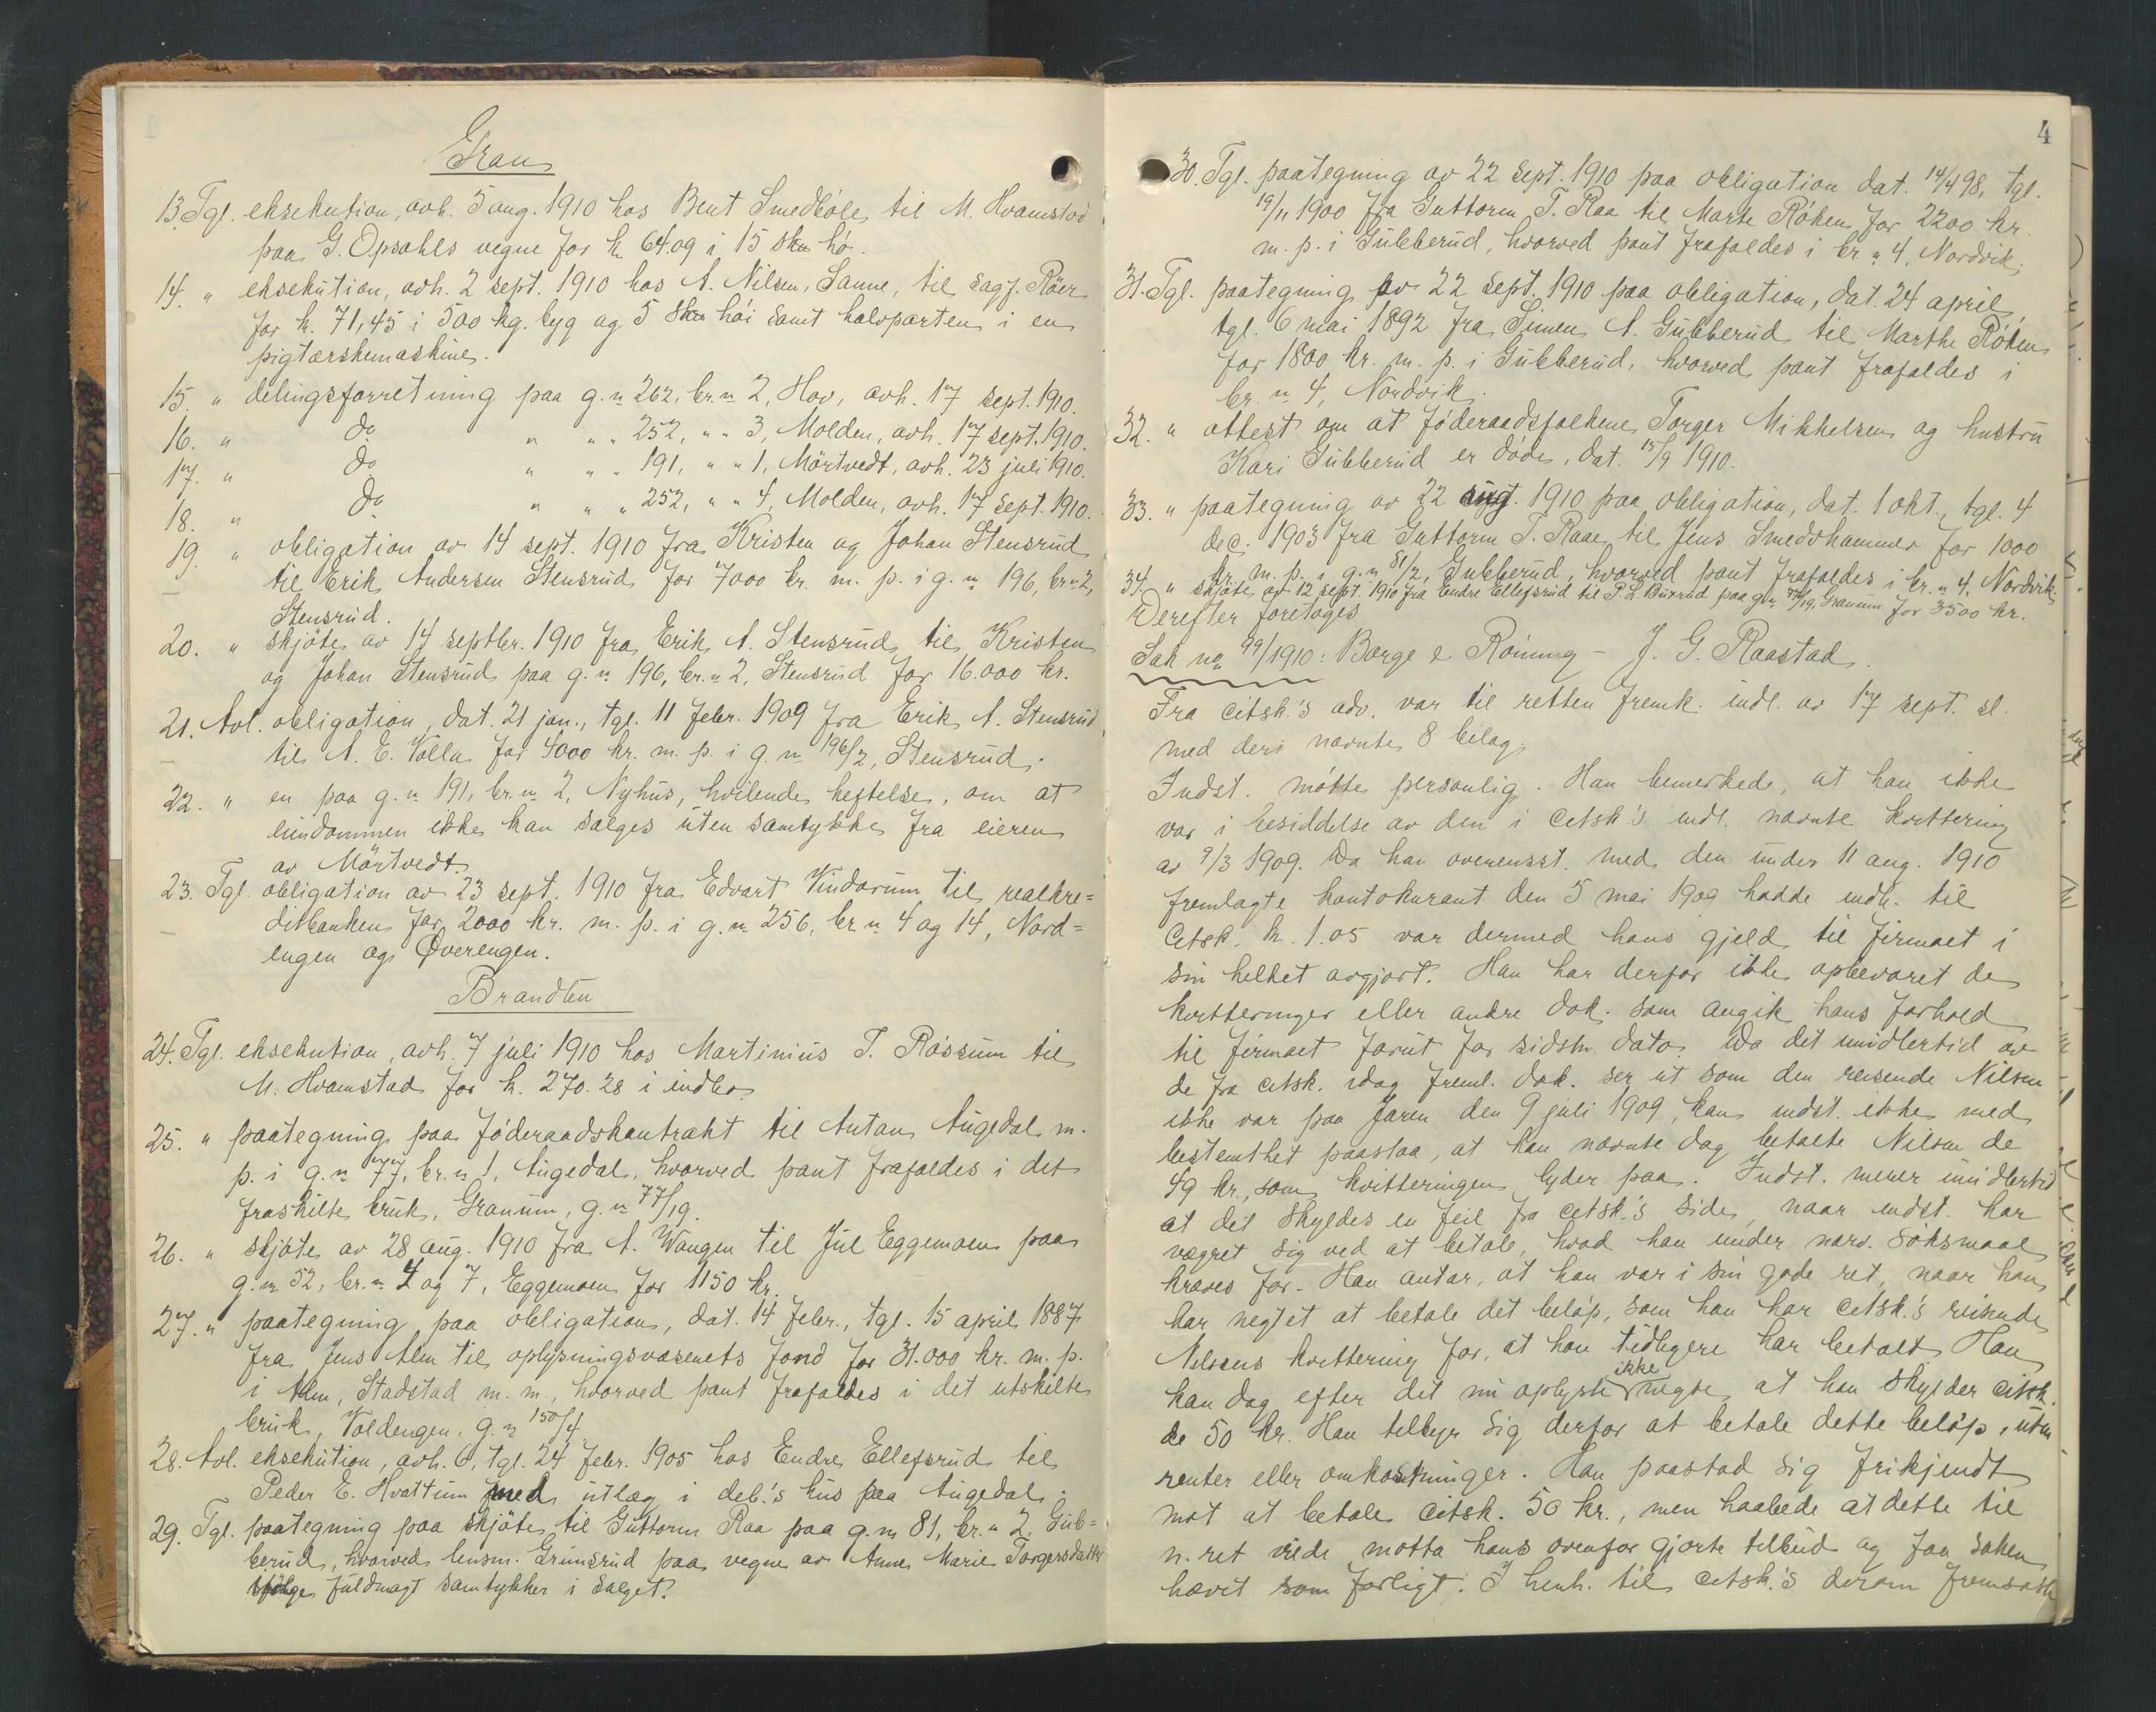 Gran
13. Tgl. eksekution, avh. 5 aug. 1910 hos Bent Smedbøle til M. Hvamstad
paa G. Opsahls vegne for kr. 64.09 i 15 skm hø.
14. " eksekution, avh. 2 sept. 1910 hos A. Nilsen, Sanne, til sagf. Röer
for kr. 71,45 i 500 kg. byg og 5 skm høi samt halvparten i en
pigtærskemaskine.
15. " delingsforretning paa g. n 262, br. n 2, Hov, avh. 17 sept. 1910.
16. " do " " " 252, " " 3, Molden, avh. 17 sept. 1910.
17. " do " " " 191, " " 1, Mörtvedt, avh. 23 juli 1910.
18. " do " " " 252, " " 4, Molden, avh. 17 sept. 1910.
19. " obligation av 14 sept. 1910 fra Kristen og Johan Stensrud
til Erik Andersen Stensrud for 7000 kr. m. p. i g. n 196, br. n 2,
Stensrud.
20. " skjøte av 14 septbr. 1910 fra Erik A. Stensrud til Kristen
og Johan Stensrud paa g. n 196, br. n 2, Stensrud for 16.000 kr.
21. Avl. obligation, dat. 21 jan., tgl. 11 febr. 1909 fra Erik A. Stensrud
til A. E. Volla for 4000 kr. m. p. i g. n 196/2, Stensrud.
22. " en paa g. n 191, br. n 2, Nyhus, hvilende heftelse, om at
eiendommen ikke kan sælges uten samtykke fra eieren
av Mörtvedt.
23. Tgl. obligation av 23 sept. 1910 fra Edvart Vindorum til realkre=
ditbanken for 2000 kr. m. p. i g. n 256, br n 4 og 14, Nord=
engen og Øverengen.
Brandbu
24. Tgl. eksekution, avh. 7 juli 1910 hos Martinius T. Røssum til
M. Hvamstad for kr. 270.28 i indbo.
25. " paategning paa føderaadskontrakt til Anton Augedal m.
p. i g. n 77, br. n 1, Augedal, hvorved pant frafaldes i det
fraskilte bruk, Granum, g. n 77/19.
26. " skjøte av 28 aug. 1910 fra A. Wangen til Jul Eggemoen paa
g. n 52, br. n 4 og 7, Eggemoen for 1150 kr.
27. " paategning paa obligation, dat. 14 febr., tgl. 15 april 1887
fra Jens Alm til oplysningsvæsenets fond for 31.000 kr. m. p.
i Alm, Stadstad m. m., hvorved pant frafaldes i det utskilte
bruk, Voldengen, g. n 150/4.
28. Avl. eksekution, avh. 6, tgl. 24 febr. 1905 hos Endre Ellefsrud til
Peder E. Hvattum med utlæg i deb.'s hus paa Augedal.
29. Tgl. paategning paa skjøte til Guttorm Raa paa g. n 81, br. n 2, Gub=
berud, hvorved lensm. Grimsrud paa vegne av Anne Marie Torgersdatter
ifølge fuldmagt samtykker i salget.
4
30. Tgl. paategning av 22 sept. 1910 paa obligation dat. 14/4 98, tgl.
19/11 1900 fra Guttorm T. Raa til Marte Røken for 2200 kr.
m. p. i Gubberud, hvorved pant frafaldes i br n 4, Nordvik.
31. Tgl. paategning av 22 sept. 1910 paa obligation, dat. 24 april,
tgl. 6 mai 1892 fra Simen A. Gubberud til Marthe Røken
for 1800 kr. m. p. i Gubberud, hvorved pant frafaldes i
br. n 4, Nordvik.
32. " attest om at føderaadsfolkene Torger Mikkelsen og hustru
Kari Gubberud er døde, dat. 15/9 1910.
33. " paategning av 22 aug. 1910 paa obligation, dat. 1 okt., tgl. 4
dec. 1903 fra Guttorm T. Raae til Jens Smedshammer for 1000
kr. m. p. i g. n 81/2, Gubberud, hvorved pant frafaldes i br. n 4, Nordvik.
34. " skjøte av 12 sept. 1910 fra Endre Ellefsrud til P. L. Burrud paa g n 77/19, Granum for 3500 kr.
Derefter foretoges
Sak no 99/1910: Borge & Röning – J. G. Raastad.
Fra citsk.'s adv. var til retten fremk. indl. av 17 sept. sl.
med deri nævnte 8 bilag.
Indst. møtte personlig. Han bemerkede, at han ikke
var i besiddelse av den i citsk.'s indl. nævnte kvittering
av 9/3 1909. Da han overensst. med den under 11 aug. 1910
fremlagte kontokurant den 5 mai 1909 hadde indb. til
citsk. kr. 1.05 var dermed hans gjeld til firmaet i
sin helhet avgjort. Han har derfor ikke opbevaret de
kvitteringer eller andre dok. som angik hans forhold
til firmaet forut for sidstn. dato. Da det imidlertid av
de fra citsk. idag freml. dok. ser ut som den reisende Nilsen
ikke var paa Jaren den 9 juli 1909, kan indst. ikke med
bestemthet paastaa, at han nævnte dag betalte Nilsen de
49 kr., som kvitteringen lyder paa. Indst. mener imidlertid
at det skyldes en feil fra citsk.'s side, naar indst. har
vægret sig ved at betale, hvad han under nærv. søksmaal
kræves for. Han antar, at han var i sin gode ret, naar han
har negtet at betale det beløp, som han har citsk.'s reisende
Nilsens kvittering for, at han tidligere har betalt. Han
kan dog efter det nu oplyste ikke negte, at han skylder citsk.
de 50 kr. Han tilbyr sig derfor at betale dette beløp, uten
renter eller omkostninger. Han paastod sig frikjendt
mot at betale citsk. 50 kr., men haabede at dette til
n. ret vilde motta hans ovenfor gjorte tilbud og faa saken
hævet som forligt. I henh. til citsk.'s derom fremsatte